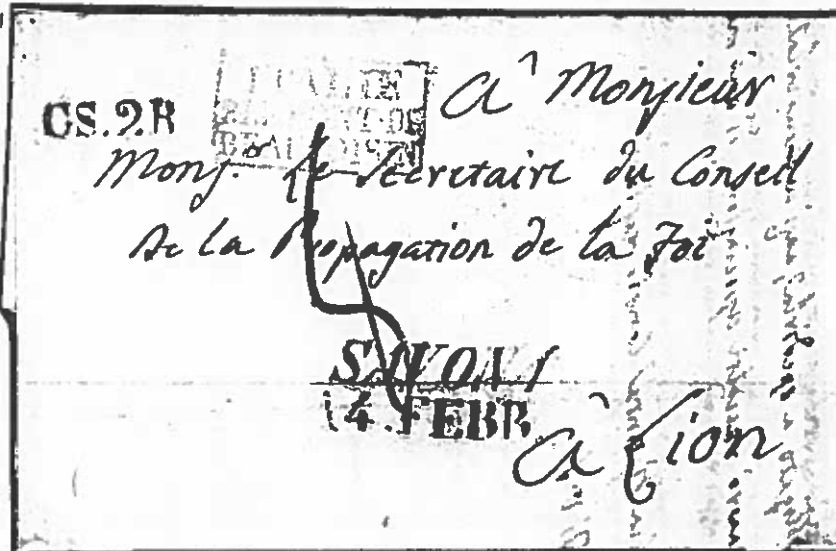 CS.2R
à Monsieur
Mons.r le Secretaire du Conseil
De la Propagation de la Foi
SAVONA
14. FEBB.
à Lion